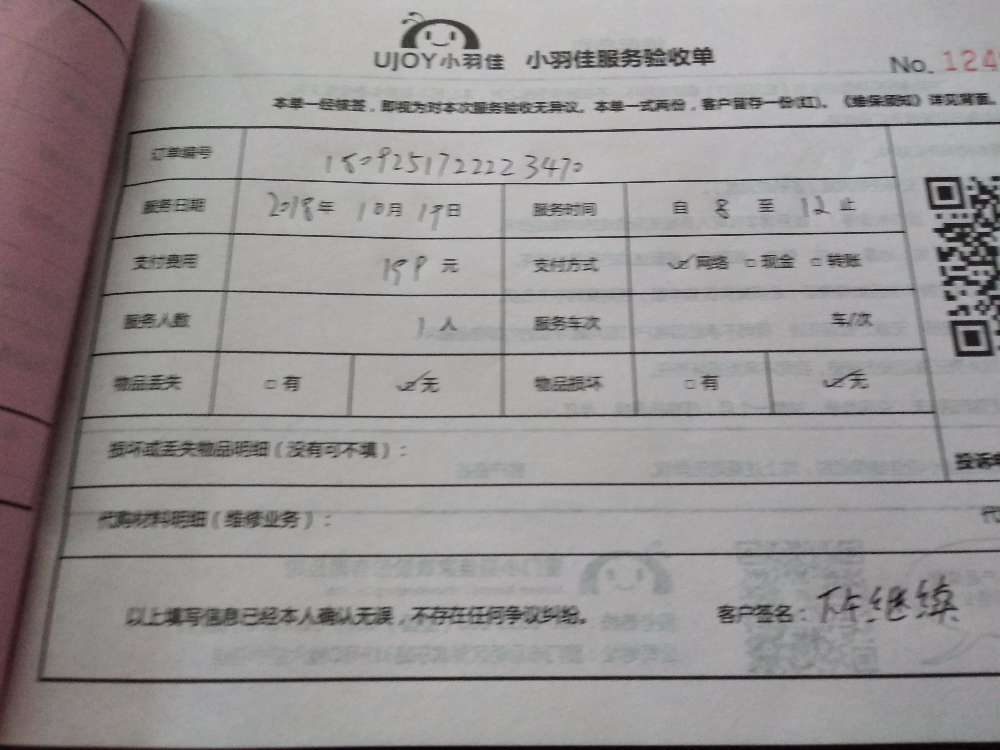 UJOY小羽佳 小羽佳服务验收单 No. 124
本单一经核签，即视为对本次服务验收无异议。本单一式两份，客户留存一份(红)。《维保须知》详见背面。
订单编号 1809251722223470
服务日期 2018年 10月 19日 服务时间 自 8 至 12 止
支付费用 159 元 支付方式 ☑网络 □现金 □转账
服务人数 1人 服务车次 车/次
物品丢失 □有 ☑无 物品损坏 □有 ☑无
损坏或丢失物品明细（没有可不填）：
投诉
代购材料明细（维修业务）：
代
以上填写信息已经本人确认无误，不存在任何争议纠纷。 客户签名：陈继